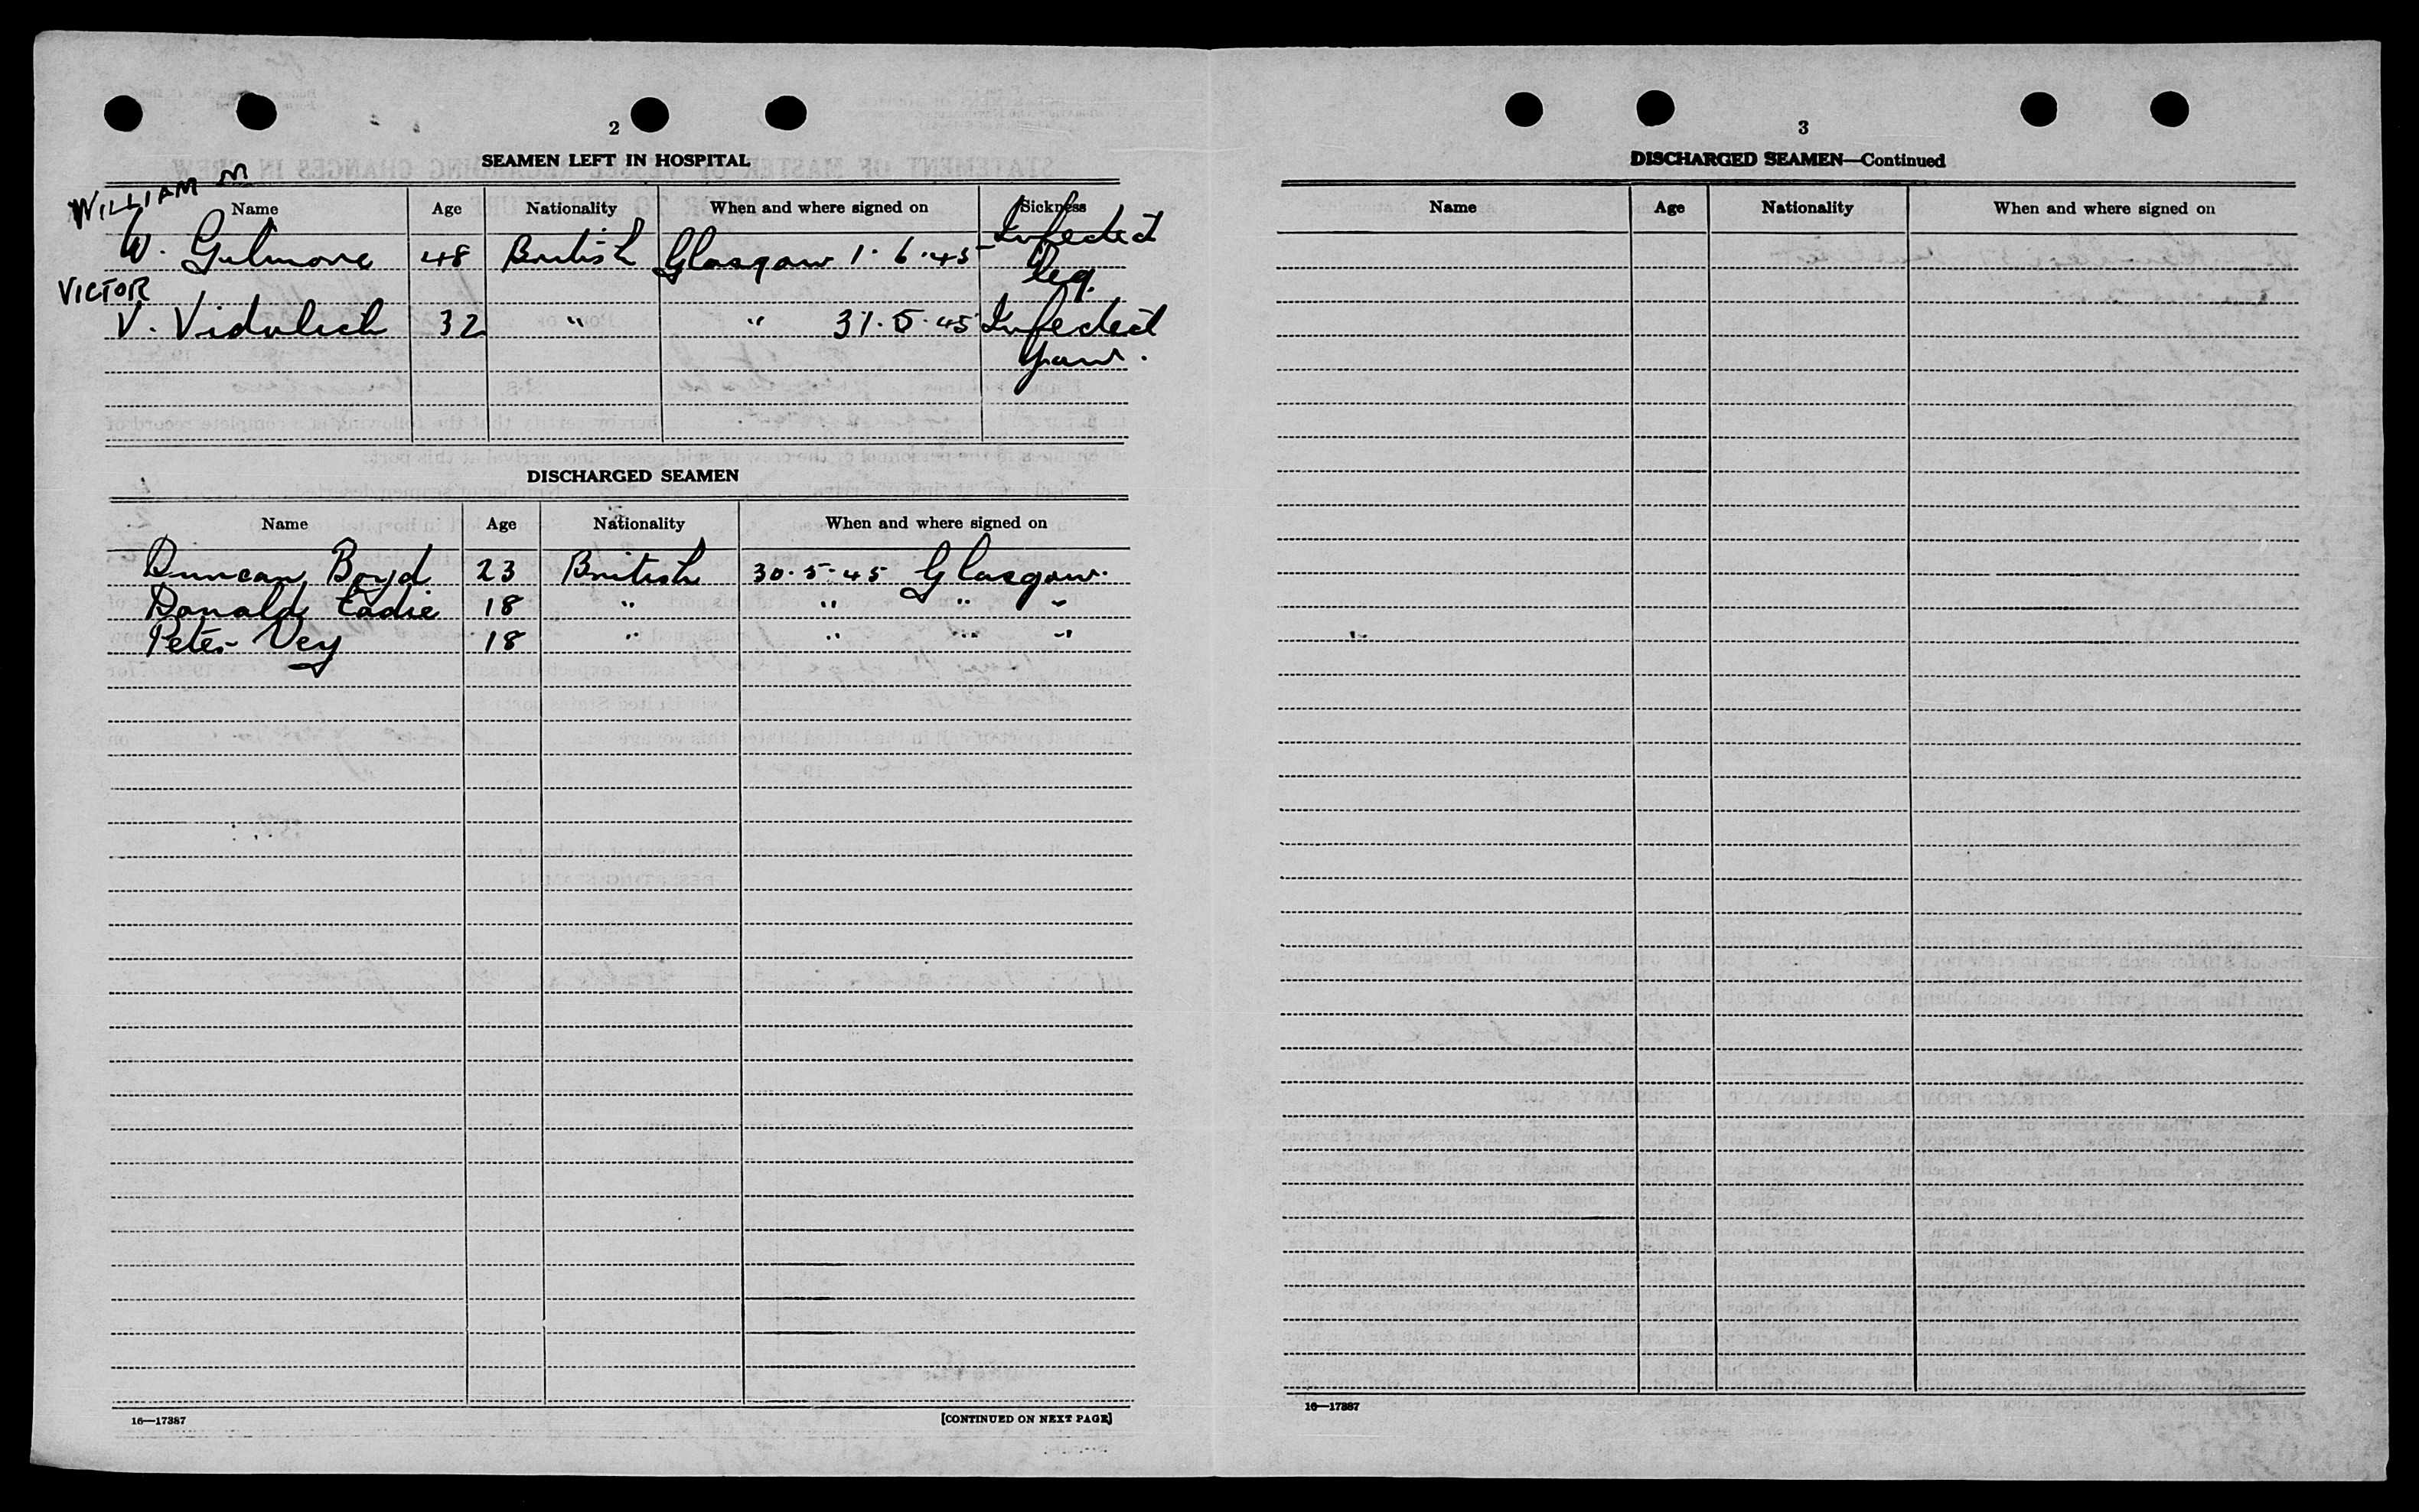 2
SEAMEN LEFT IN HOSPITAL
WILLIAM M
Name Age Nationality When and where signed on Sickness
W. Gilmore 48 British Glasgow 1.6.45 Infected
leg.
VICTOR
V. Vidulich 32 " " 31.5.45 Infected
Jaw.
DISCHARGED SEAMEN
Name Age Nationality When and where signed on
Duncan Boyd 23 British 30.5.45 Glasgow.
Donald Eadie 18 " " " "
Peter Vey 18 " " " "
16—17387 [CONTINUED ON NEXT PAGE]
3
DISCHARGED SEAMEN—Continued
Name Age Nationality When and where signed on
16—17387